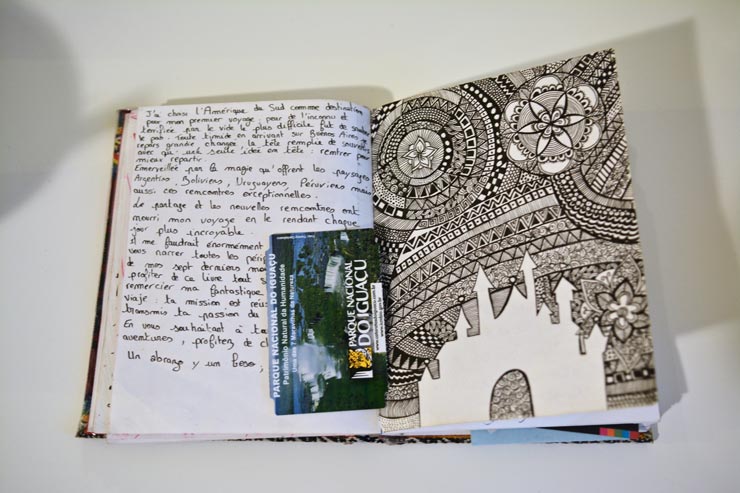 J'ai choisi l'Amérique du Sud comme destination
pour mon premier voyage : peur de l'inconnu et
terrifiée par le vide le plus difficile fut de sauter
le pas. Toute timide en arrivant sur Buenos Aires je
repars grandie, changée, la tête remplie de souvenirs
avec qu' une seule idée en tête : rentrer pour
mieux repartir.
Emerveillée par la magie qu'offrent les paysages
Argentins, Boliviens, Uruguayens, Péruviens mais
aussi ces rencontres exceptionnelles.
Le partage et les nouvelles rencontres ont
nourri mon voyage en le rendant chaque
jour plus incroyable.
Il me faudrait énormément
vous narrer toutes les péri
de mes sept derniers mo
profiter de ce livre tout s
remercier ma fantastique
viaje : ta mission est réus
transmis ta passion du
En vous souhaitant à to
aventures, profitez de c
Un abrazo y un beso,
PARQUE NACIONAL DO IGUAÇU
Patrimônio Natural da Humanidade
Uma das 7 Maravilhas da Natureza
PARQUE NACIONAL
DO IGUAÇU